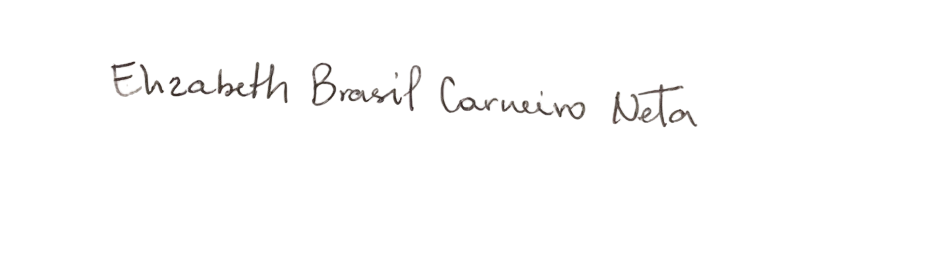 Elizabeth Brasil Carneiro Neta